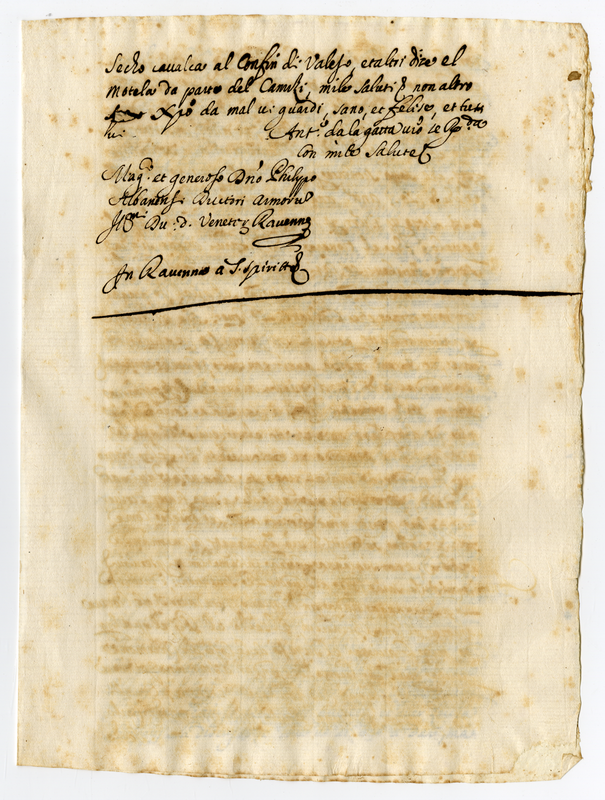 Secho cavalca al Confin di Valese, et altri dice el
Motela da parte del Camisi, mile saluti non altro
Xpo da mal vi guardi, sano, et felise, et tutti
vui. Ant.o da la gatta vro ce
con mile salute
Mag.co et generoso Dno Philippo
Albanensi Ductori armorum
Du: D. Venetor Ravenne
In Ravenna a S. Spiritto